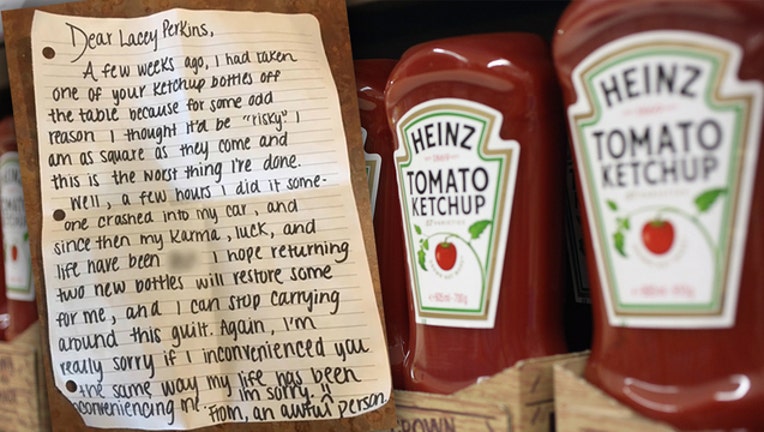 Dear Lacey Perkins,
A few weeks ago, I had taken
one of your ketchup bottles off
the table because for some odd
reason I thought it'd be "risky" I
am as square as they come and
this is the worst thing I've done.
Well, a few hours I did it some-
one crashed into my car, and
since then my Karma, luck, and
life have been I hope returning
two new bottles will restore some
for me, and I can stop carrying
around this guilt. Again, I'm
really sorry if I inconvenienced you
the same way my life has been
inconveniencing me. I'm sorry. !!
From, an awful person.
HEINZ
TOMATO
KETCHUP
HEINZ
TOMATO
KETCHUP
GROWN